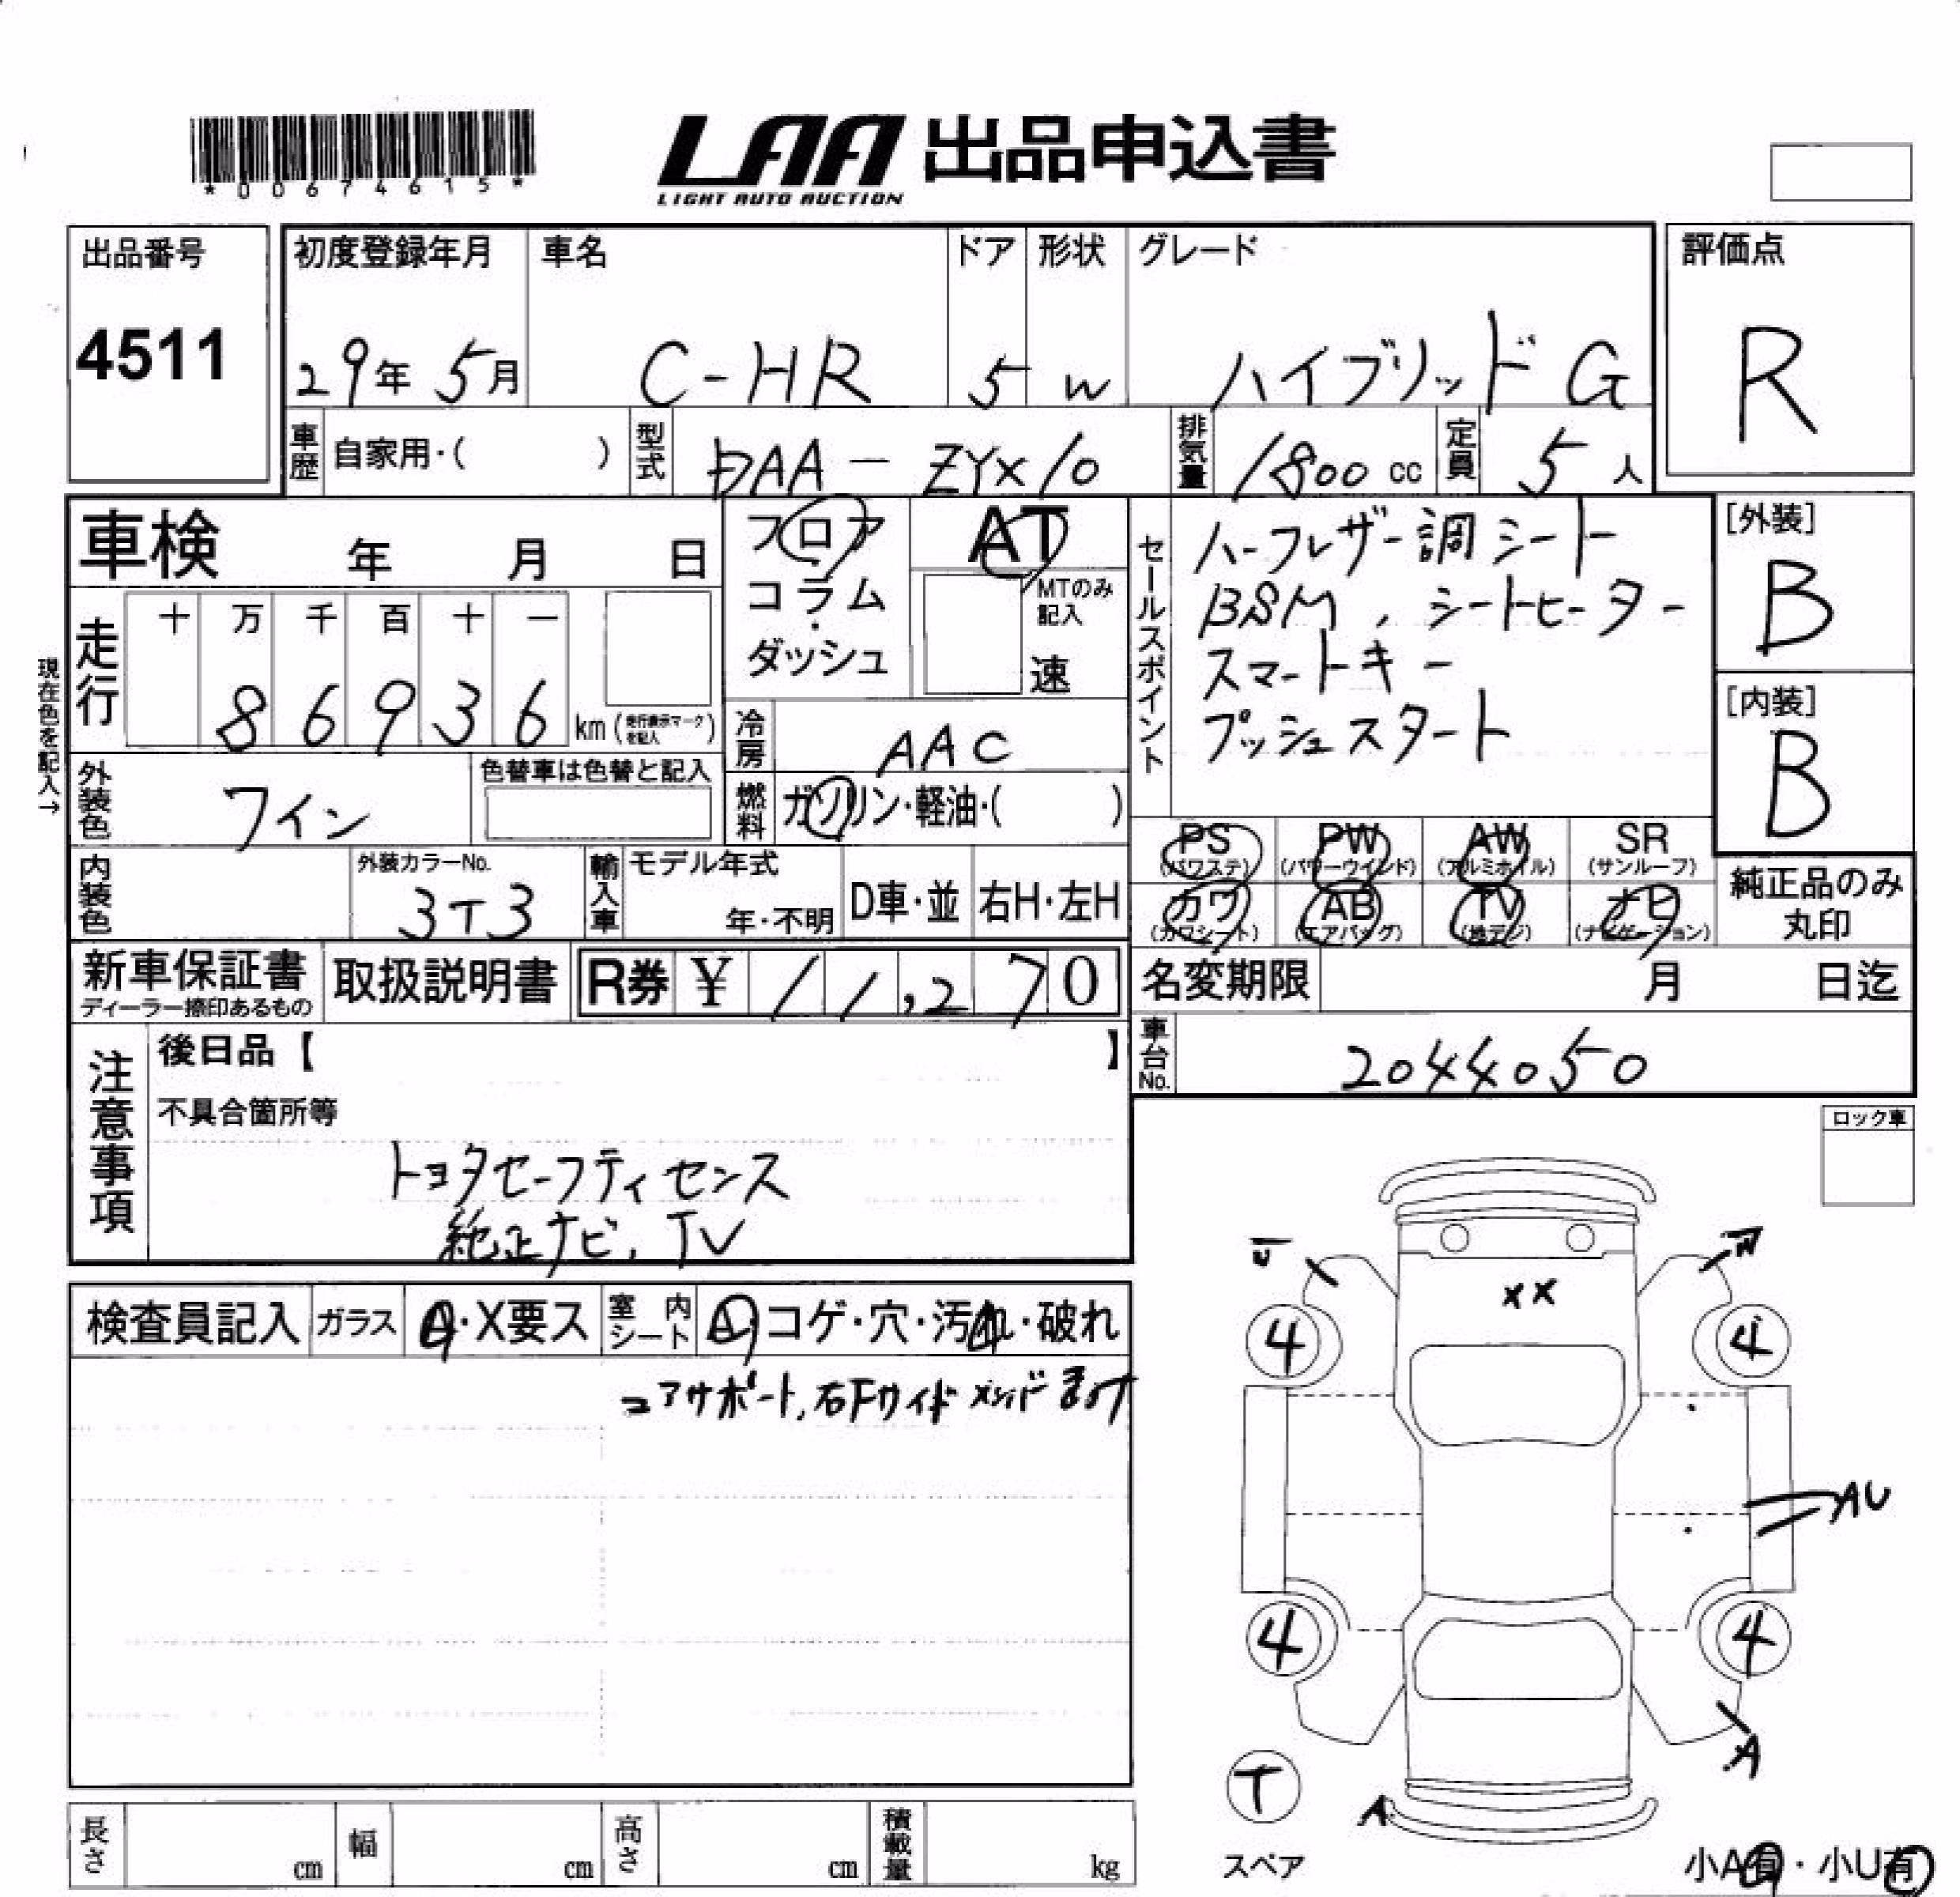 *00674615*
LAA 出品申込書
LIGHT AUTO AUCTION
出品番号
4511
初度登録年月
29年 5月
車名
C-HR
ドア
5
形状
W
グレード
ハイブリッド G
評価点
R
車歴 自家用・( )
型式 DAA-ZYX10
排気量 1800 cc
定員 5 人
車検 年 月 日
フロア
コラム
・
ダッシュ
AT
MTのみ
記入
速
セールスポイント
ハーフレザー調シート
BSM, シートヒーター
スマートキー
プッシュスタート
[外装]
B
[内装]
B
現在色を記入→
走行
十 万 千 百 十 一
8 6 9 3 6 km (走行表示マークを記入)
冷房 AAC
燃料 ガソリン・軽油・( )
外装色 ワイン
色替車は色替と記入
内装色
外装カラーNo.
3T3
輸入車
モデル年式
年・不明
D車・並
右H・左H
PS
(パワステ)
PW
(パワーウインド)
AW
(アルミホイル)
SR
(サンルーフ)
カワ
(カワシート)
AB
(エアバッグ)
TV
(地デジ)
ナビ
(ナビゲーション)
純正品のみ
丸印
新車保証書
ディーラー捺印あるもの
取扱説明書
R券 ¥ 11,270
名変期限 月 日迄
車台No. 2044050
注意事項
後日品【 】
不具合箇所等
トヨタセーフティセンス
純正ナビ, TV
ロック車
検査員記入
ガラス A・X要ス
室内シート A・コゲ・穴・汚れ・破れ
コアサポート, 右Fサイドメンバー
U
W
XX
4
4
AU
4
4
A
T
スペア
A
小A有・小U有
長さ cm
幅 cm
高さ cm
積載量 kg